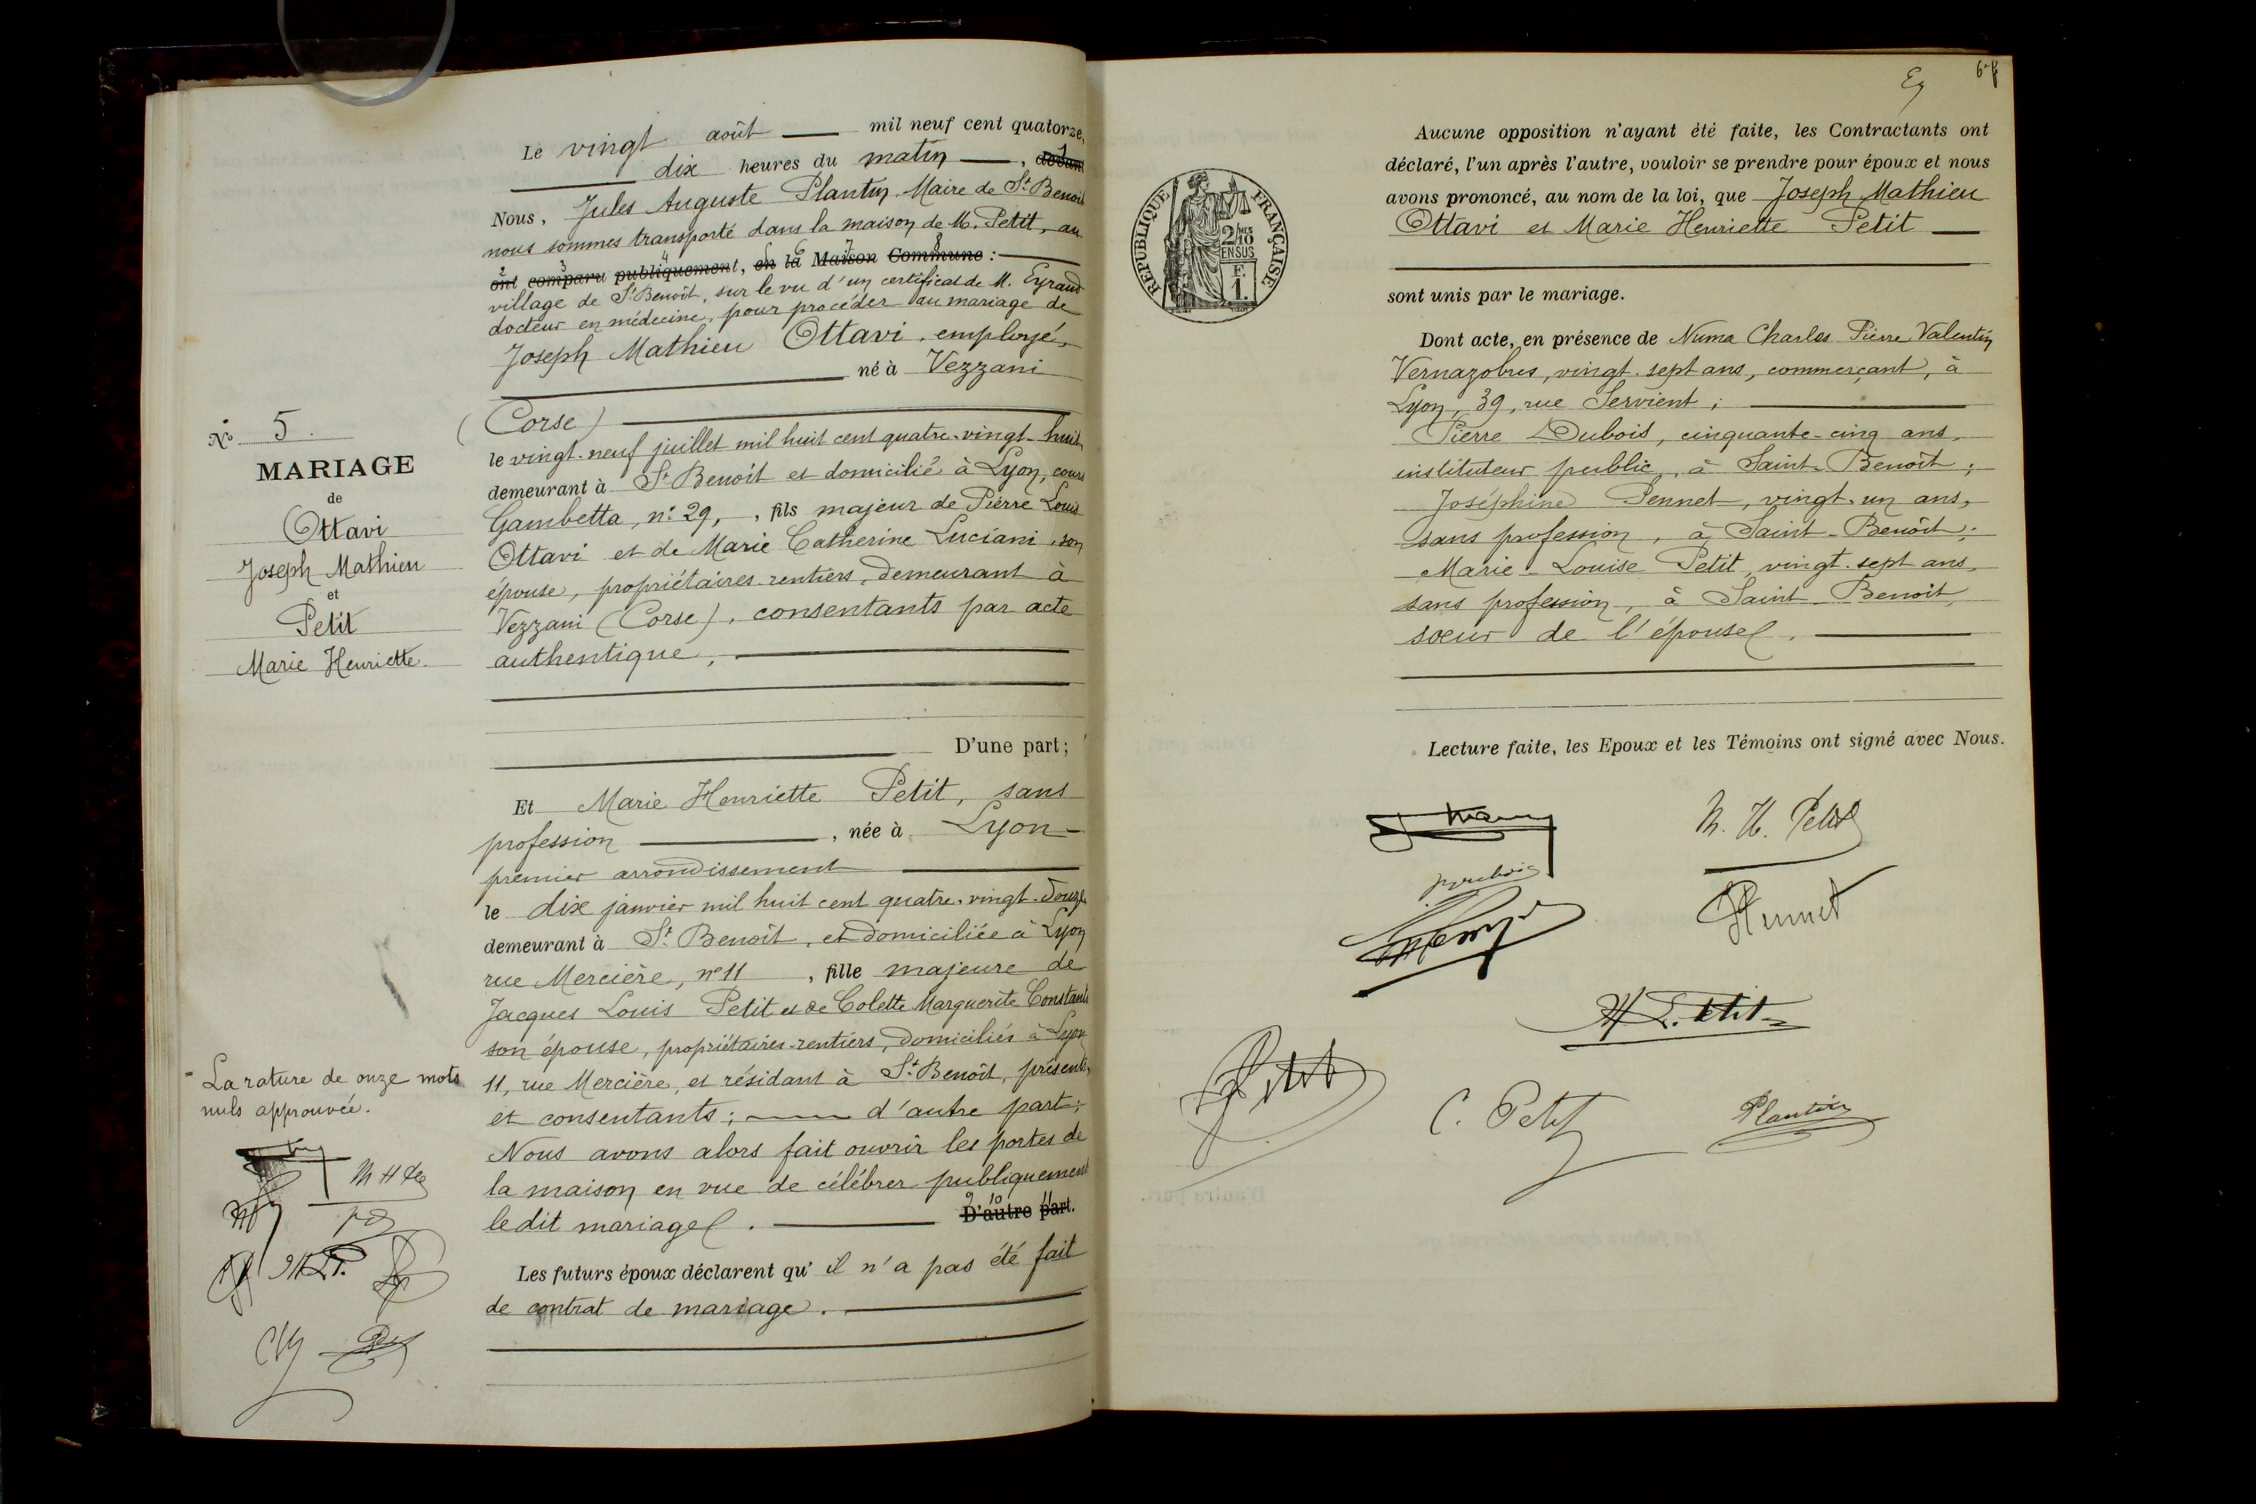 Le vingt août mil neuf cent quatorze,
dix heures du matin, devant
Nous, Jules Auguste Plantin Maire de St Benoit
nous sommes transporté dans la maison de M. Petit, au
ont comparu publiquement, en la Maison Commune :
village de St Benoît, sur le vu d'un certificat de M. Eyraud
docteur en médecine, pour procéder au mariage de
Joseph Mathieu Ottavi, employé,
né à Vezzani
(Corse)
le vingt-neuf juillet mil huit cent quatre-vingt-huit,
demeurant à St Benoît et domicilié à Lyon, cours
Gambetta, n° 29, , fils majeur de Pierre Louis
Ottavi et de Marie Catherine Luciani, son
épouse, propriétaires-rentiers, demeurant à
Vezzani (Corse), consentants par acte
authentique,
D'une part;
Et Marie Henriette Petit, sans
profession, née à Lyon
premier arrondissement
le dix janvier mil huit cent quatre-vingt-douze
demeurant à St Benoît, et domiciliée à Lyon
rue Mercière, n° 11, fille majeure de
Jacques Louis Petit et de Colette Marguerite Constant
son épouse, propriétaires-rentiers, domiciliés à Lyon
11, rue Mercière, et résidant à St Benoît, présents,
et consentants; d'autre part;
Nous avons alors fait ouvrir les portes de
la maison en vue de célébrer publiquement
le dit mariage.
D'autre part.
Les futurs époux déclarent qu'il n'a pas été fait
de contrat de mariage.
N° 5.
MARIAGE
de
Ottavi
Joseph Mathieu
et
Petit
Marie Henriette.
La rature de onze mots
nuls approuvée.
RÉPUBLIQUE FRANÇAISE
2/10
EN SUS
F.
1.
Aucune opposition n'ayant été faite, les Contractants ont
déclaré, l'un après l'autre, vouloir se prendre pour époux et nous
avons prononcé, au nom de la loi, que Joseph Mathieu
Ottavi et Marie Henriette Petit
sont unis par le mariage.
Dont acte, en présence de Numa Charles Pierre Valentin
Vernazobres, vingt-sept ans, commerçant, à
Lyon, 39, rue Servient;
Pierre Dubois, cinquante-cinq ans,
instituteur public, à Saint-Benoît;
Joséphine Pennet, vingt-un ans,
sans profession, à Saint-Benoît;
Marie-Louise Petit, vingt-sept ans,
sans profession, à Saint-Benoit,
sœur de l'épouse.
Lecture faite, les Epoux et les Témoins ont signé avec Nous.
M. H. Petit
PDubois
M L. Petit
C. Petit
Plantin